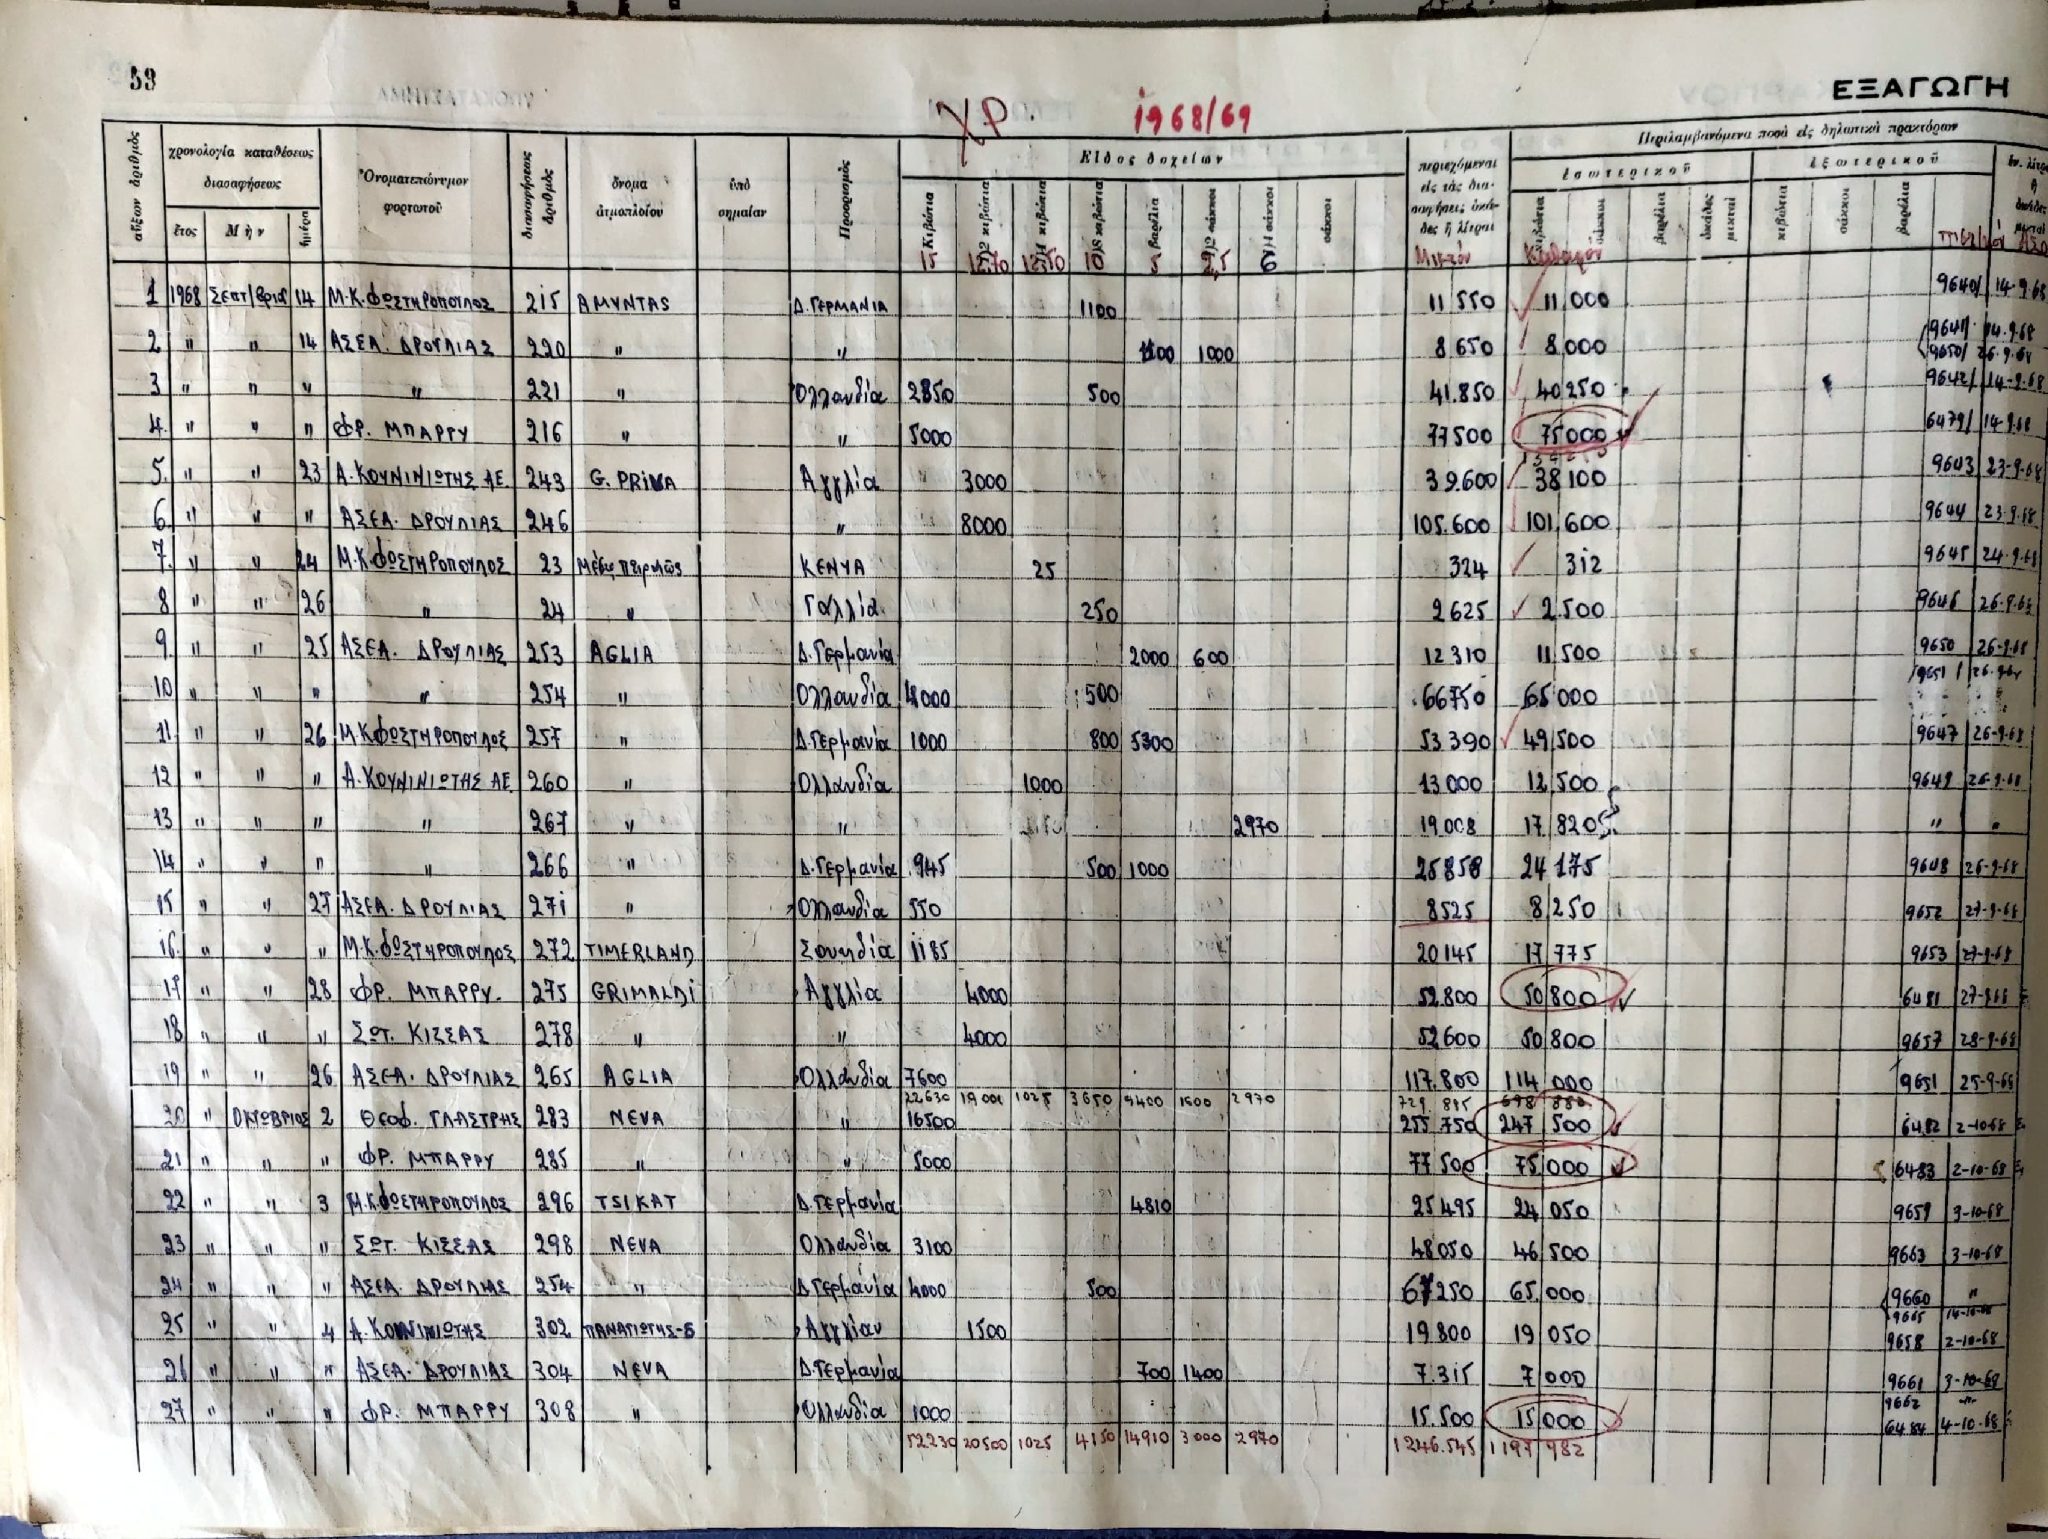 59
ΕΞΑΓΩΓΗ
ΧΡ. 1968/69
αὔξων ἀριθμὸς
χρονολογία καταθέσεως διασαφήσεως
ἔτος Μὴν ἡμέρα
Ὀνοματεπώνυμον φορτωτοῦ
διασαφήσεως ἀριθμὸς
ὄνομα ἀτμοπλοίου
ὑπὸ σημαίαν
Προορισμὸς
Εἶδος δοχείων
Κιβώτια 1)2 κιβώτια 1)4 κιβώτια 1)8 κιβώτια βαρέλια 1)2 σάκκοι 1)4 σάκκοι σάκκοι
15 12,70 12,50 10 5 2,5 6
περιεχόμεναι εἰς τὰς διασαφήσεις ὀκάδες ἢ λίτραι
Μικτόν Καθαρόν
Περιλαμβανόμενα ποσὰ εἰς δηλωτικὰ πρακτόρων
ἐσωτερικοῦ ἐξωτερικοῦ
κιβώτια σάκκοι βαρέλια ὀκάδες μικταὶ κιβώτια σάκκοι βαρέλια
1 1968 Σεπτ/βριος 14 Μ.Κ.ΦΩΣΤΗΡΟΠΟΥΛΟΣ 215 AMYNTAS Δ.ΓΕΡΜΑΝΙΑ 1100 11550 11000 9640/ 14-9-68
2 " " 14 ΑΣΕΑ. ΔΡΟΥΛΙΑΣ 220 " " 1100 1000 8650 8000 9641/ 14.9.68
9650/ 26.9.68
3 " " " " 221 " Ολλανδία 2850 500 41.850 40250 9642/ 14-9-68
4. " " " ΦΡ. ΜΠΑΡΡΥ 216 " " 5000 77500 75000 6479/ 14-9-68
5. " " 23 Α.ΚΟΥΝΙΝΙΩΤΗΣ ΑΕ. 243 G. PRIMA Αγγλία 3000 39.600 38100 9643 23-9-68
6. " " " ΑΣΕΑ. ΔΡΟΥΛΙΑΣ 246 " 8000 105.600 101.600 9644 23.9.68
7. " " 24 Μ.Κ.ΦΩΣΤΗΡΟΠΟΥΛΟΣ 23 Μέσω πειραιώς ΚΕΝΥΑ 25 324 312 9645 24-9-68
8 " " 26 " 24 " Γαλλία 250 2625 2.500 9646 26-9-68
9. " " 25 ΑΣΕΑ. ΔΡΟΥΛΙΑΣ 253 AGLIA Δ.Γερμανία 2000 600 12310 11500 9650 26-9-68
10 " " " " 254 " Ολλανδία 4000 500 66750 65000 9651 26-9-68
11. " " 26 Μ.ΚΦΩΣΤΗΡΟΠΟΥΛΟΣ 257 " Δ.Γερμανία 1000 800 5300 53390 49500 9647 26-9-68
12 " " " Α.ΚΟΥΝΙΝΙΩΤΗΣ ΑΕ 260 " Ολλανδία 1000 13000 12500 9649 26-9-68
13 " " " " 267 " " 2970 19.008 17.820 " "
14 " " " " 266 " Δ.Γερμανία 945 500 1000 25858 24175 9648 26-9-68
15 " " 27 ΑΣΕΑ. ΔΡΟΥΛΙΑΣ 271 " Ολλανδία 550 8525 8250 9652 27-9-68
16. " " " Μ.Κ.ΦΩΣΤΗΡΟΠΟΥΛΟΣ 272 TIMERLAND Σουηδία 1185 20145 17775 9653 27-9-68
17 " " 28 ΦΡ. ΜΠΑΡΡΥ. 275 GRIMALDI Αγγλία 4000 52.800 50800 6481 27-9-68
18 " " " ΣΩΤ. ΚΙΣΣΑΣ 278 " " 4000 52600 50800 9657 28-9-68
19 " " 26 ΑΣΕΑ. ΔΡΟΥΛΙΑΣ 265 AGLIA Ολλανδία 7600 117.800 114000 9651 25-9-68
22630 19000 1025 3650 9400 1600 2970
20 " ΟΚΤΩΒΡΙΟΣ 2 ΘΕΟΦ. ΓΛΑΣΤΡΗΣ 283 NEVA " 16500 255.750 247500 6482 2-10-68
21 " " " ΦΡ. ΜΠΑΡΡΥ 285 " " 5000 77500 75000 6483 2-10-68
22 " " 3 Μ.ΚΦΩΣΤΗΡΟΠΟΥΛΟΣ 296 TSIKAT Δ.Γερμανία 4810 25495 24050 9659 3-10-68
23 " " " ΣΩΤ. ΚΙΣΣΑΣ 298 NEVA Ολλανδία 3100 48050 46500 9663 3-10-68
24 " " " ΑΣΕΑ. ΔΡΟΥΛΙΑΣ 254 " Δ.Γερμανία 4000 500 67250 65.000 9660 "
9665 14-10-68
25 " " 4 Α.ΚΟΥΝΙΝΙΩΤΗΣ 302 ΠΑΝΑΓΙΩΤΗΣ-Β Αγγλίαν 1500 19800 19050 9658 2-10-68
26 " " " ΑΣΕΑ. ΔΡΟΥΛΙΑΣ 304 NEVA Δ.Γερμανία 700 1400 7.315 7000 9661 3-10-68
9662 "
27 " " " ΦΡ. ΜΠΑΡΡΥ 308 " Ολλανδία 1000 15.500 15000 6484 4-10-68
52230 20500 1025 4150 14910 3000 2970 1246.545 1197982